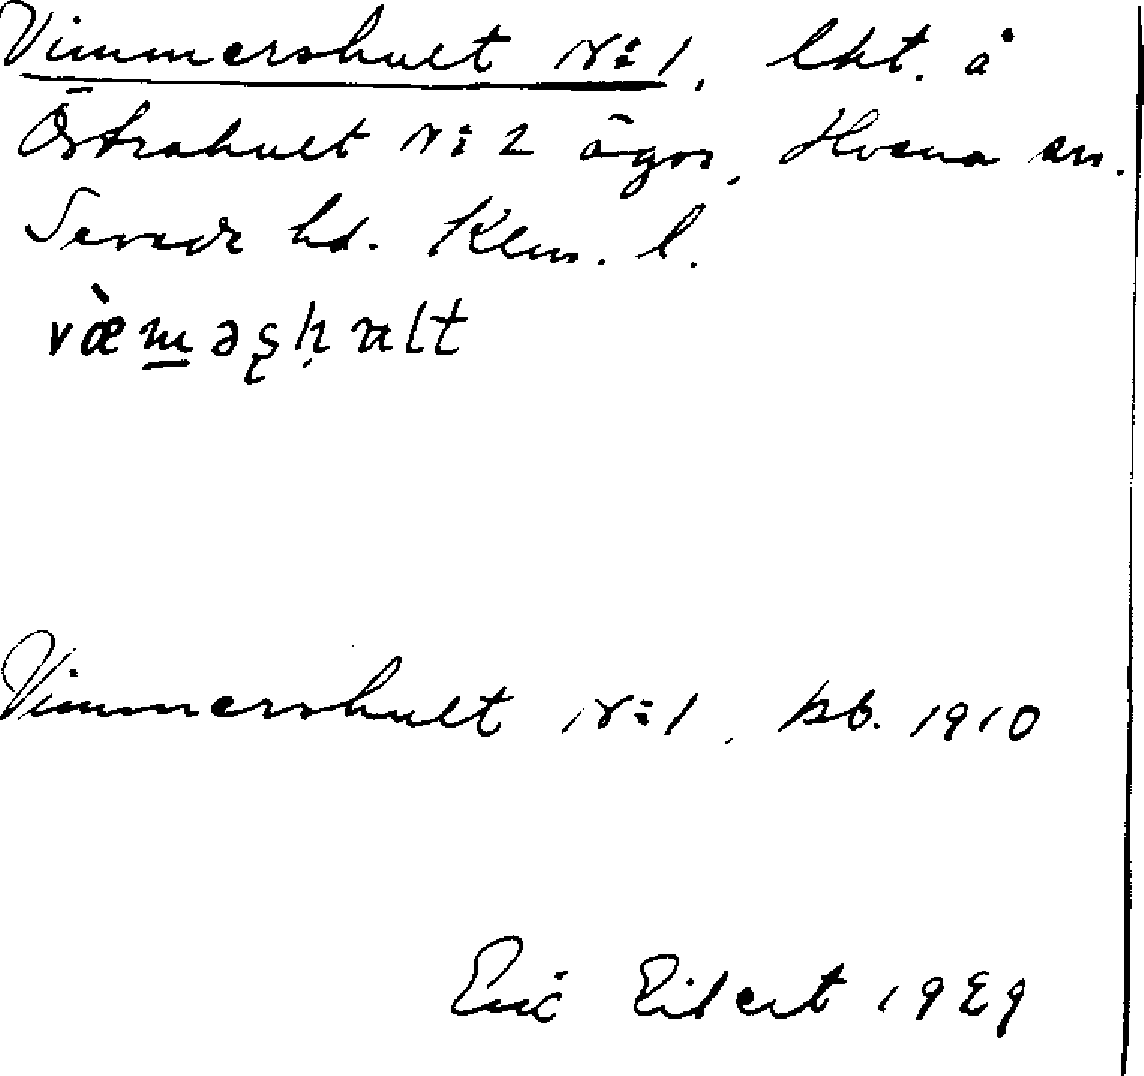 Vimmershult N:1, lht. å
Östrahult N:2 ägor, Hvena sn.
Sevede hd. Klm. l.
Vimmershult N:1, kb. 1910
Eric Eilert 1929